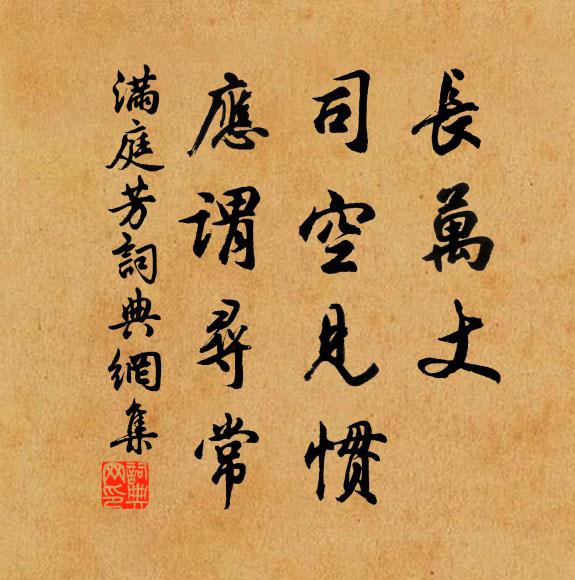 長萬丈
司空見慣
應謂尋常
滿庭芳詞典網集
詞典
网印